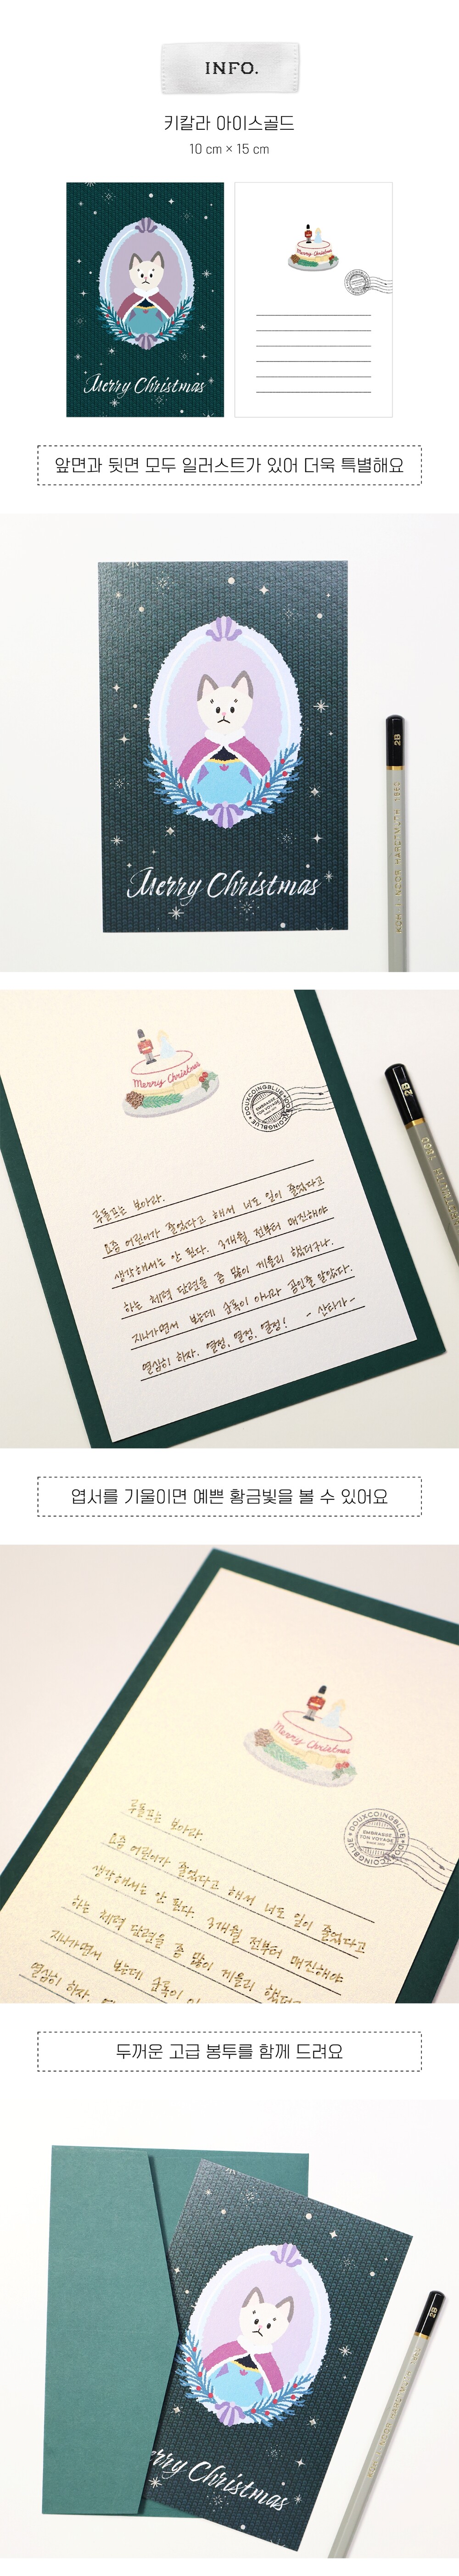 INFO.
키칼라 아이스골드
10 cm × 15 cm
Merry Christmas
Merry Christmas
앞면과 뒷면 모두 일러스트가 있어 더욱 특별해요
2B
Merry Christmas
Merry Christmas
DOUXCOINGBLUE
DOUXCOINGBLUE
2B
루돌프는 보아라.
요즘 어린이가 줄었다고 해서 너도 일이 줄었다고
생각해서는 안 된다. 3개월 전부터 매진해야
하는 체력 단련을 좀 많이 게을리 했더구나.
지나가면서 봤는데 순록이 아니라 곰인줄 알았다.
열심히 하자. 열정, 열정, 열정! - 산타가 -
엽서를 기울이면 예쁜 황금빛을 볼 수 있어요
Merry Christmas
DOUXCOINGBLUE
EMBRASSE
TON VOYAGE
DOUXCOINGBLUE
루돌프는 보아라.
요즘 어린이가 줄었다고 해서 너도 일이 줄었다고
생각해서는 안 된다. 3개월 전부터 매진해야
하는 체력 단련을 좀 많이 게을리
지나가면서 봤는데 순록이
열심히 하자.
두꺼운 고급 봉투를 함께 드려요
2B
erry Christmas